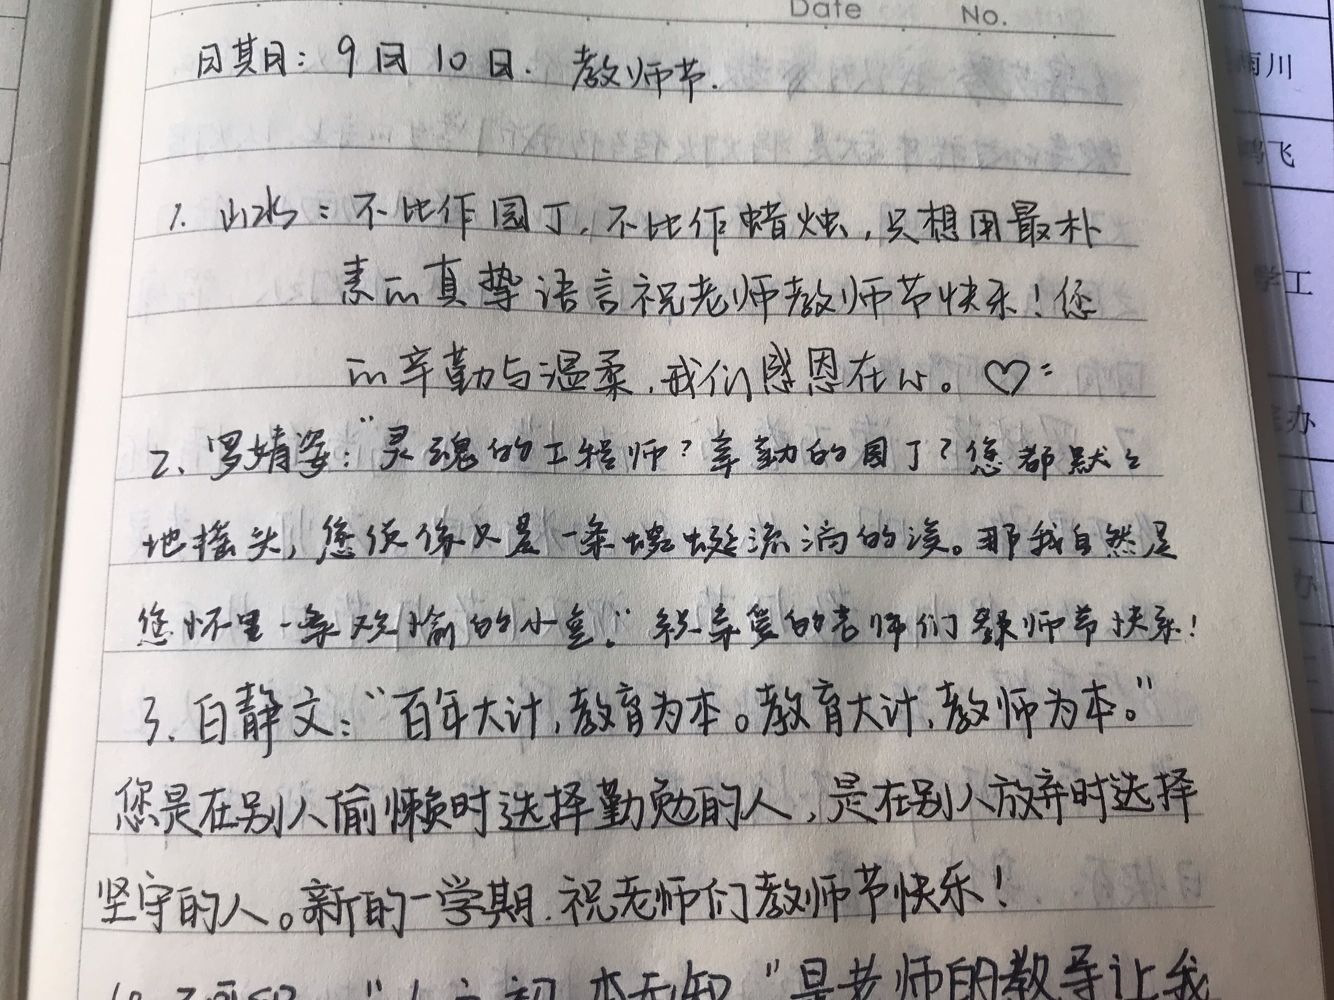 Date No.
日期：9月10日. 教师节.
1. 山水：不比作园丁，不比作蜡烛，只想用最朴
素的真挚语言祝老师教师节快乐！您
的辛勤与温柔，我们感恩在心。♡
2、罗婧姿：“灵魂的工程师？辛勤的园丁？您都默々
地摇头，您说您只是一条蜿蜒流淌的溪。那我自然是
您怀里一条欢愉的小鱼。”祝亲爱的老师们教师节快乐！
3. 白静文：“百年大计，教育为本。教育大计，教师为本。”
您是在别人偷懒时选择勤勉的人，是在别人放弃时选择
坚守的人。新的一学期，祝老师们教师节快乐！
“人之初，本无知”是老师的教导让我
南川
飞
学工
办
工
办